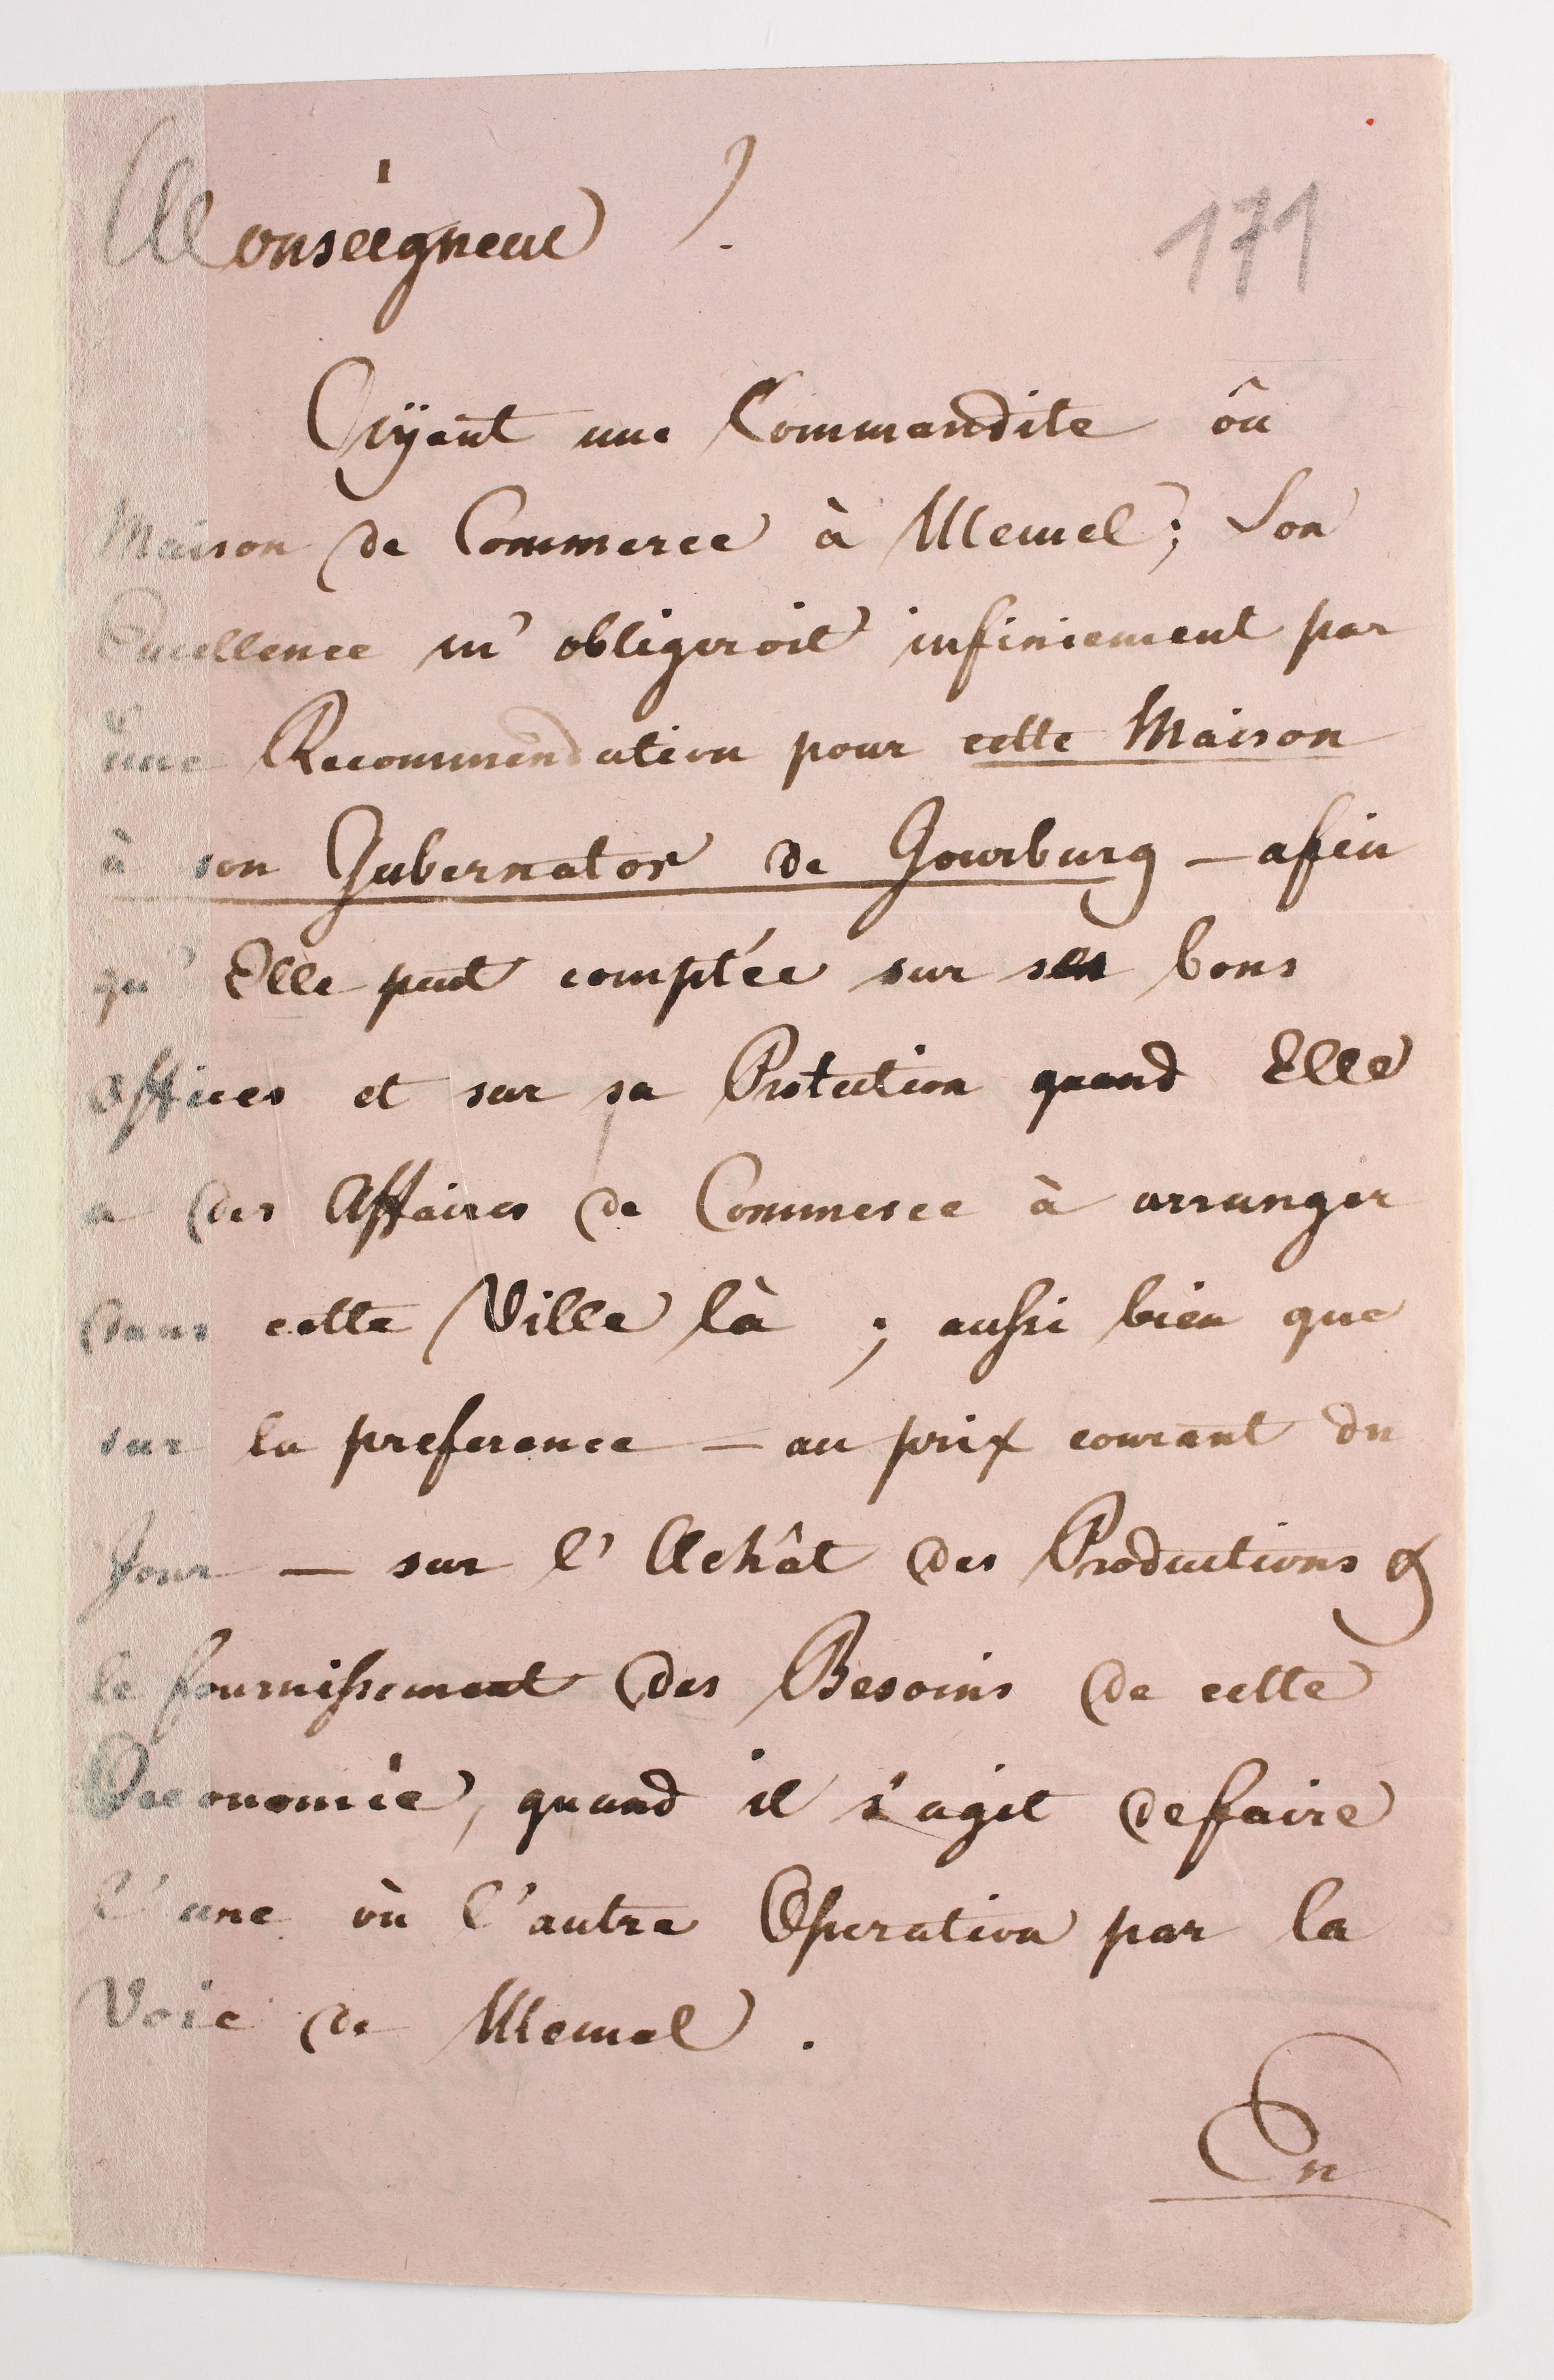 Monseigneur !
171
Aÿant une Commandite oû
Maison de Commerce à Memel; Son
Excellence m'obligeroit infiniement par
une Recommendation pour cette Maison
à son Gubernator de Gourburg — afin
qu'Elle peut comptée sur ses bons
offices et sur sa Protection quand Elle
a des Affaires de Commerce à arranger
dans cette Ville là ; aussi bien que
sur la preference — au prix courant du
Jour — sur l'Achât des Productions &
le fournissement des Besoins de cette
Oeconomie, quand il s'agit de faire
l'une où l'autre Operation par la
Voie de Memel .
En